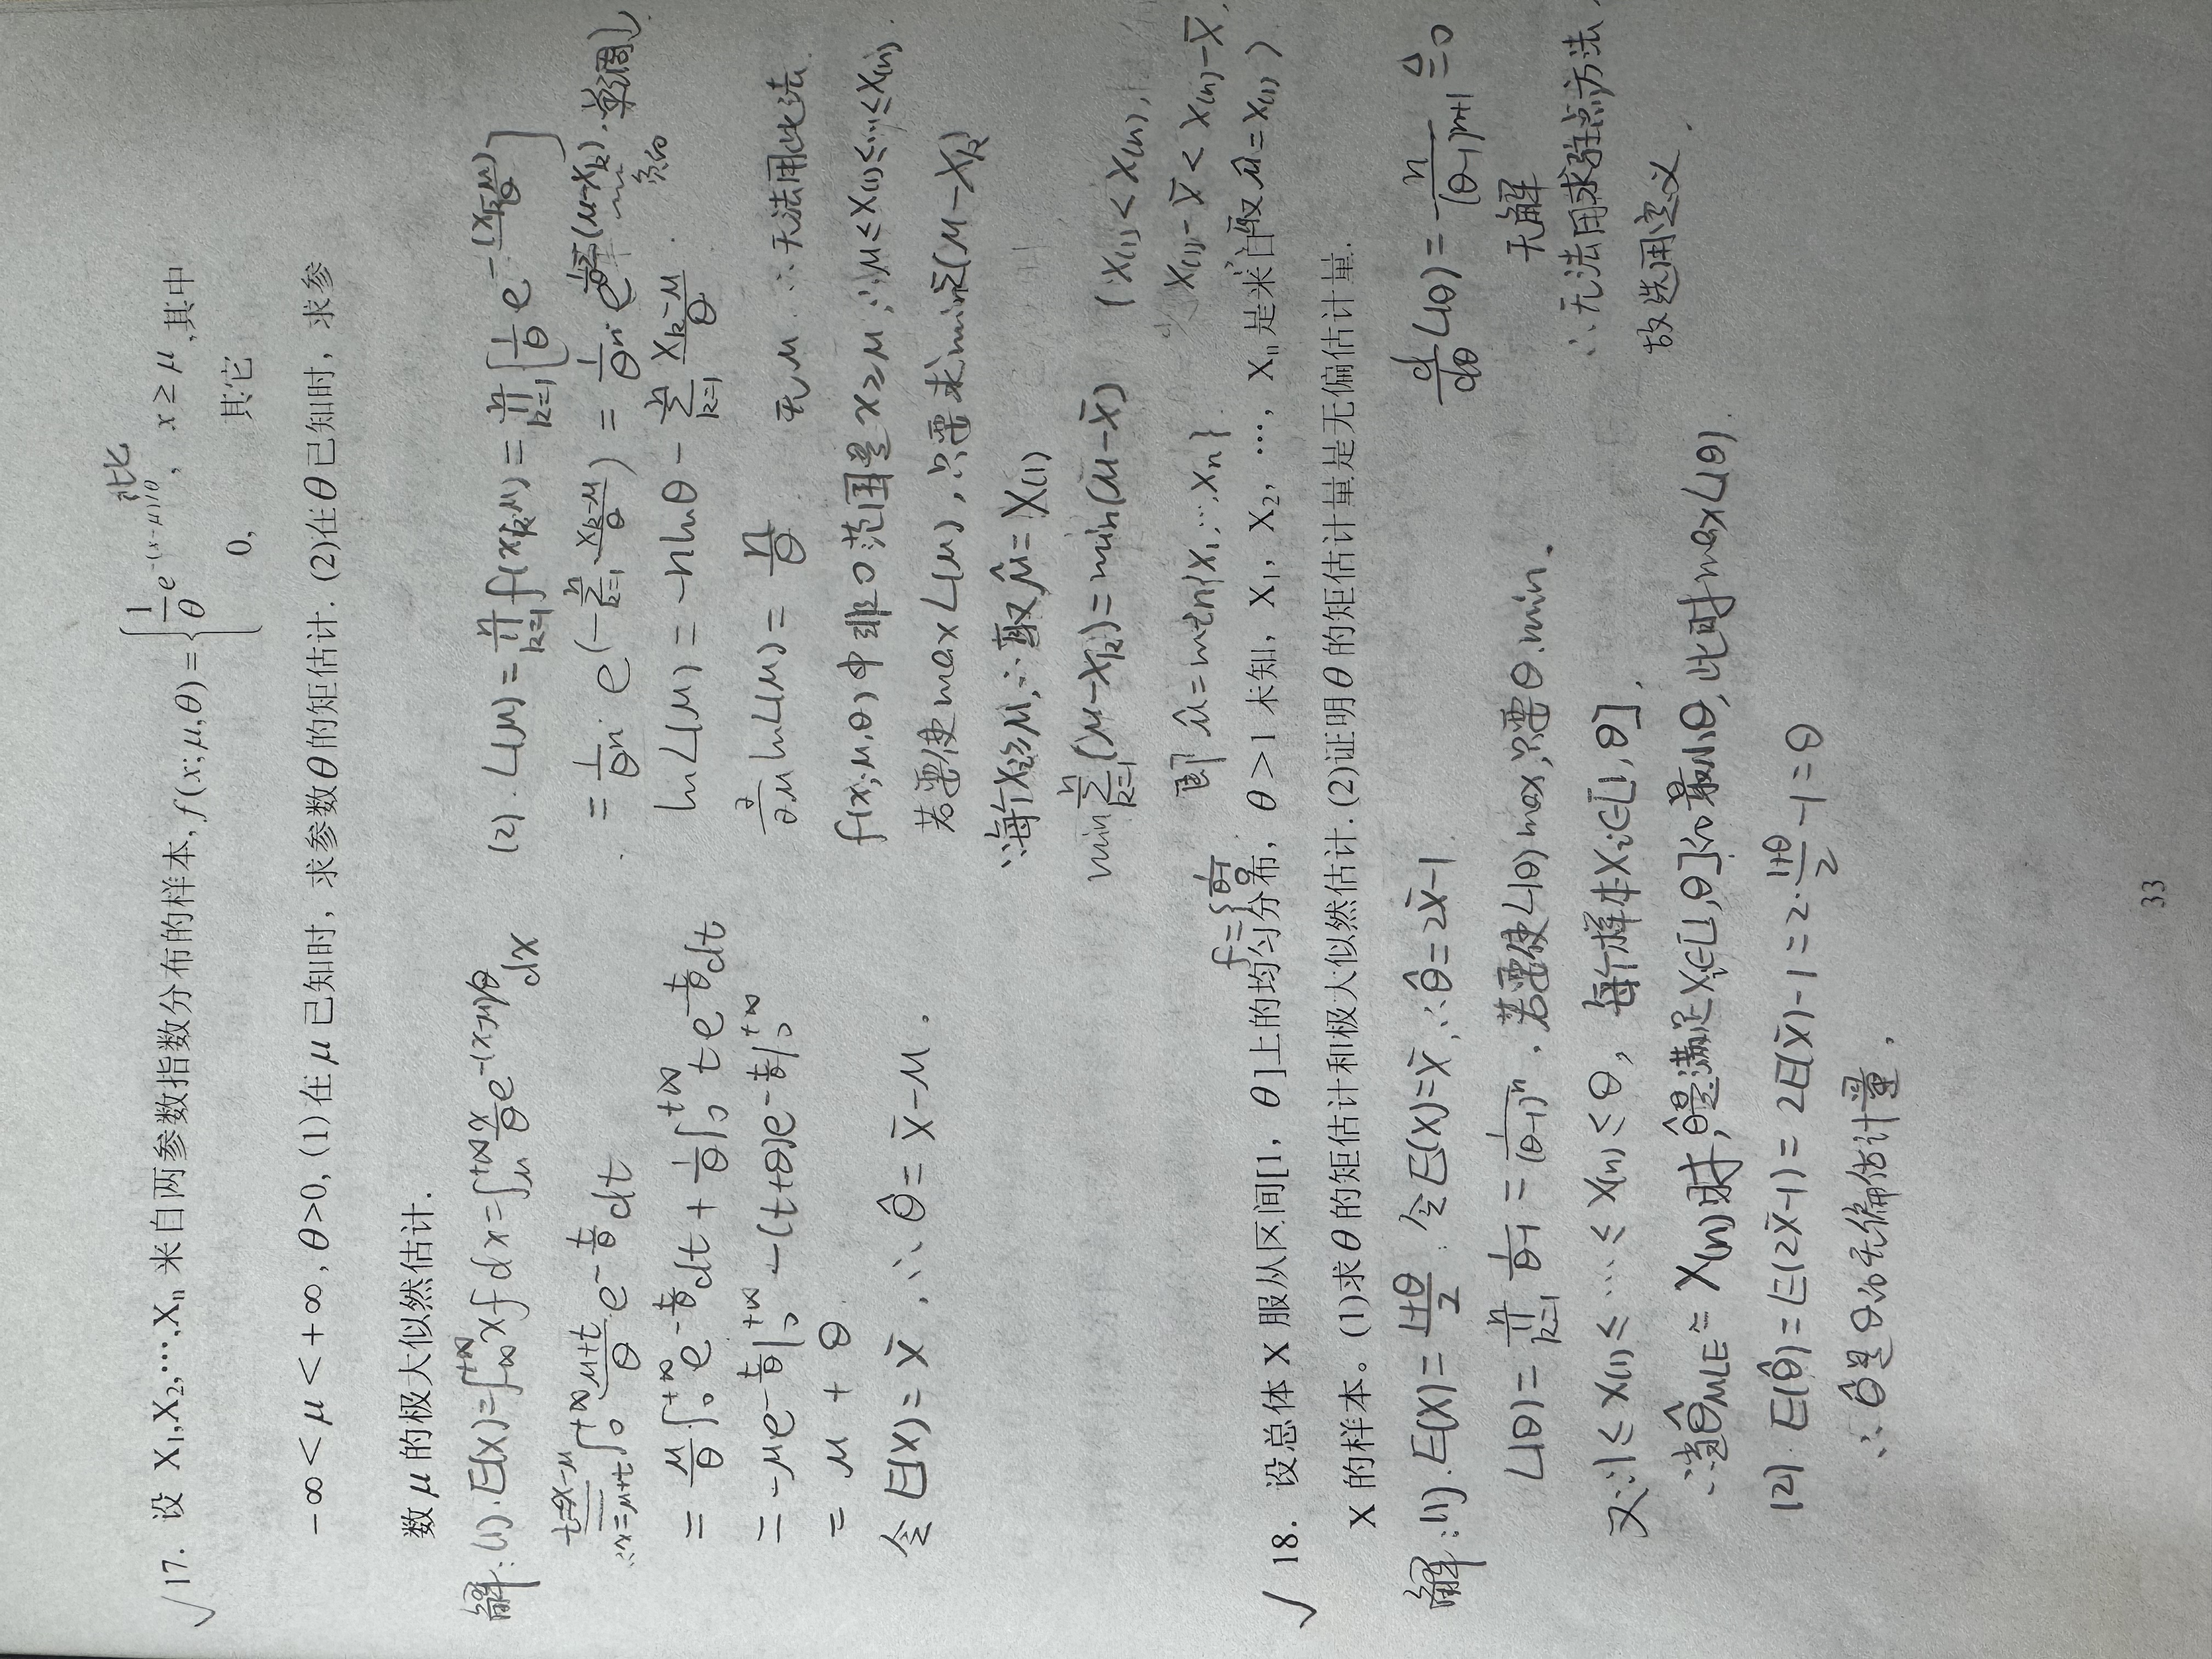 √ 17. 设 X₁,X₂,⋯,Xₙ 来自两参数指数分布的样本, f(x;μ,θ) = { 1/θ e^{-(x-μ)/θ}, x ≥ μ ,其中
0, 其它
-∞ < μ < +∞, θ>0, (1)在μ已知时，求参数θ的矩估计. (2)在θ已知时，求参
数μ的极大似然估计.
解:(1). E(X)=∫_{-∞}^{+∞} x f dx=∫_μ^{+∞} x/θ e^{-(x-μ)/θ} dx
t=x-μ ∴x=μ+t ∫_0^{+∞} (μ+t)/θ e^{-t/θ} dt
= μ/θ ∫_0^{+∞} e^{-t/θ} dt + 1/θ ∫_0^{+∞} t e^{-t/θ} dt
= -μe^{-t/θ}|_0^{+∞} -(t+θ)e^{-t/θ}|_0^{+∞}
= μ + θ.
令 E(X)= x̄ , ∴ θ̂ = x̄-μ .
(2). L(μ) = ∏_{k=1}^n f(x_k,μ) = ∏_{k=1}^n [1/θ e^{-(x_k-μ)/θ}]
= 1/θⁿ · e^(-∑_{k=1}^n (x_k-μ)/θ) = 1/θⁿ · e^{1/θ ∑(μ-x_k)} . 单调
负的
ln L(μ) = -n lnθ - ∑_{k=1}^n (x_k-μ)/θ .
∂/∂μ lnL(μ) = n/θ . 无μ ∴无法用此法.
f(x;μ,θ) 中非0范围是 x≥μ, ∴μ≤X₍₁₎≤…≤X₍ₙ₎.
若要使 max L(μ), 只要求 min∑(μ-X_k)
∵每个Xᵢ≥μ, ∴取 μ̂ = X₍₁₎
min ∑_{k=1}^n (μ-X_k) = min(μ-x̄) (∵X₍₁₎<X₍ₙ₎,
即 μ̂ = min{X₁,…,Xₙ}. X₍₁₎-x̄ < X₍ₙ₎-x̄,
∴取 μ̂ = X₍₁₎ )
f={ 1/(θ-1)
0
√ 18. 设总体 X 服从区间[1, θ]上的均匀分布, θ>1 未知, X₁, X₂, ⋯, Xₙ 是来自
X 的样本。(1)求θ的矩估计和极大似然估计. (2)证明θ的矩估计量是无偏估计量.
解:(1). E(X) = (1+θ)/2 . 令 E(X)=x̄, ∴θ̂ = 2x̄-1.
L(θ) = ∏_{k=1}^n 1/(θ-1) = 1/(θ-1)ⁿ . 若要使L(θ) max, 只要θ min.
又∵1≤X₍₁₎≤⋯≤X₍ₙ₎≤θ, 每个样本Xᵢ∈[1,θ],
∴当θ̂_MLE = X₍ₙ₎时, θ̂是满足Xᵢ∈[1,θ]的最小θ, 此时maxL(θ).
d/dθ L(θ) = n/(θ-1)^{n+1} ≜ 0
无解
∴无法用求驻点方法,
故选用定义.
(2). E(θ̂) = E(2x̄-1) = 2E(x̄)-1 = 2·(1+θ)/2 -1 = θ
∴ θ̂是θ的无偏估计量.
33